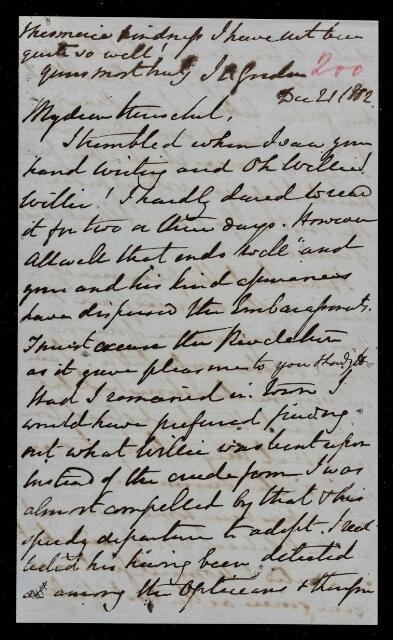 kindness I have not been
quite so well!
yours most truly J P Gordon 200
Dec 21 1882
My dear Herschel,
I trembled when I saw your
hand writing and Oh Willie!
Willie! I hardly dared to read
it for two or three days. However
"All well that ends well" and
your and his kind assurances
have dispersed the Embarassments.
I must excuse the
as it gave pleasure to you &
Had I remained in town I
would have preferred finding
out what Willie was bent upon
instead of the crude form I was
almost compelled by that & his
speedy departure to adopt. I
his having been detected
among the Opticians &